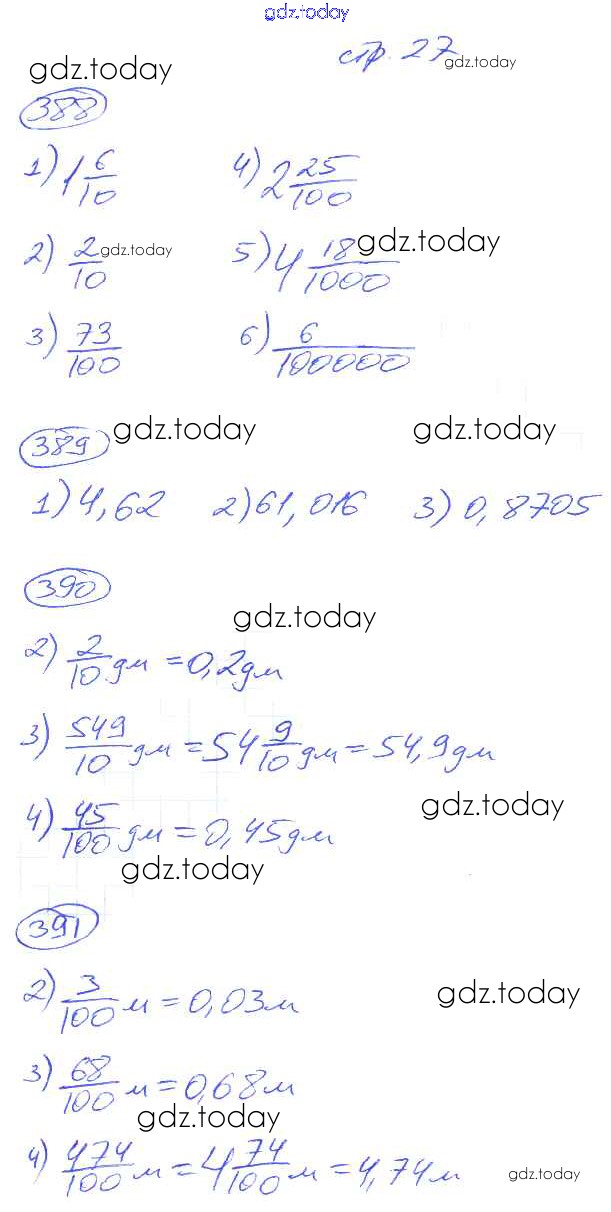 gdz.today
стр. 27
gdz.today
gdz.today
388
1) 1 6/10 4) 2 25/100
2) 2/10 5) 4 18/1000
gdz.today gdz.today
3) 73/100 6) 6/100000
389
gdz.today gdz.today
1) 4,62 2) 61,016 3) 0,8705
390
gdz.today
2) 2/10 дм = 0,2 дм
3) 549/10 дм = 54 9/10 дм = 54,9 дм
gdz.today
4) 45/100 дм = 0,45 дм
gdz.today
391
2) 3/100 м = 0,03 м
gdz.today
3) 68/100 м = 0,68 м
gdz.today
4) 474/100 м = 4 74/100 м = 4,74 м
gdz.today